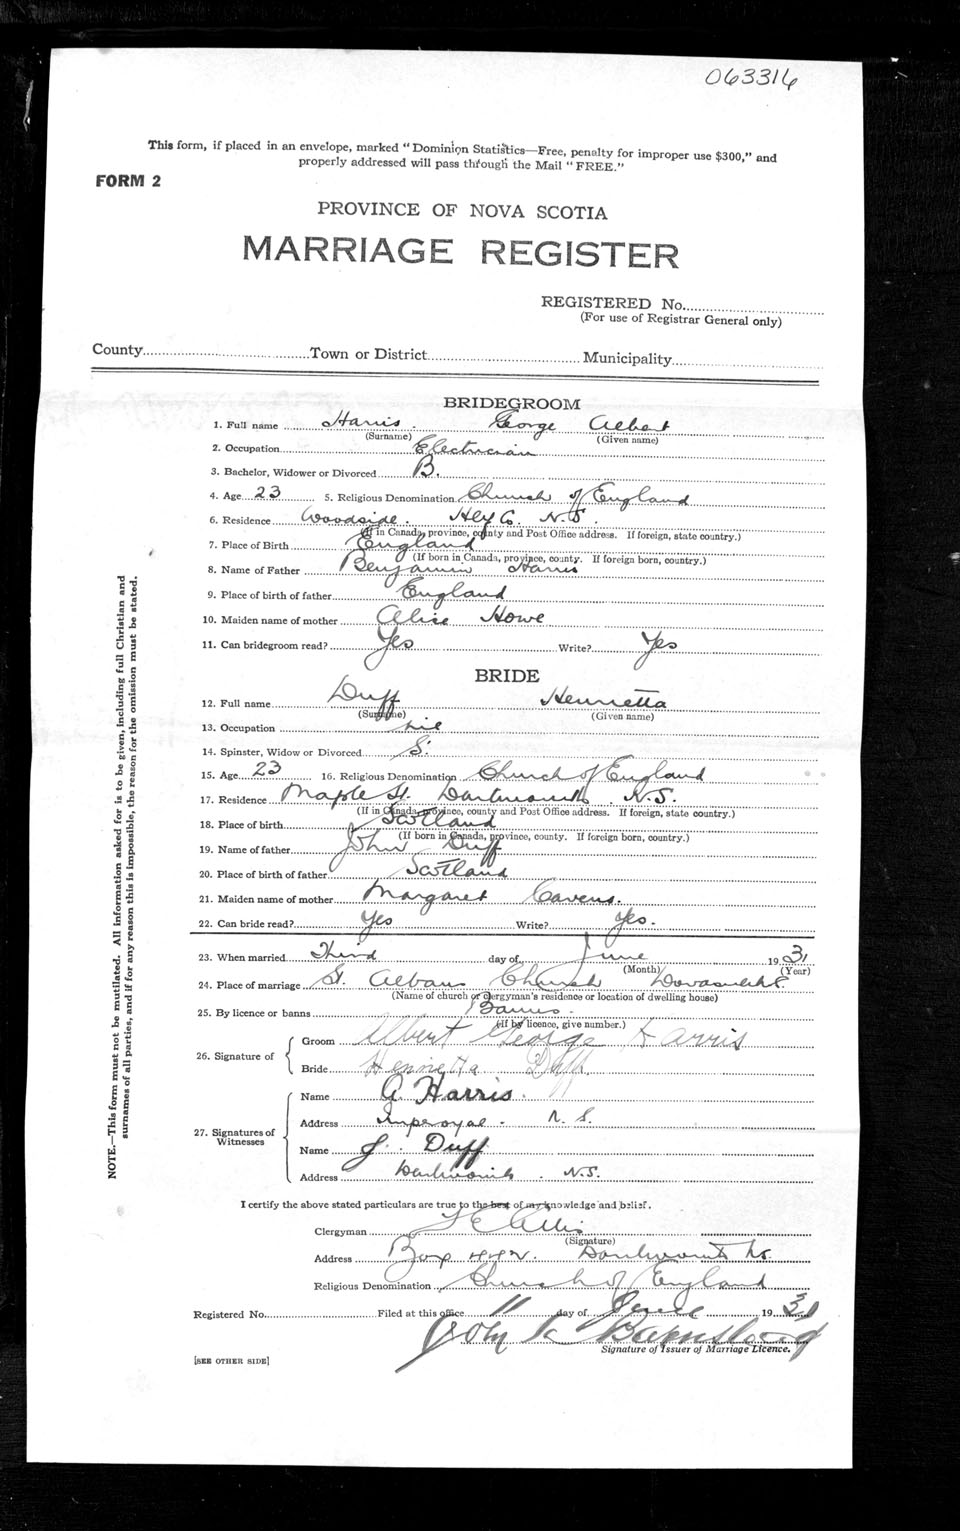 063316
This form, if placed in an envelope, marked "Dominion Statistics—Free, penalty for improper use $300," and
properly addressed will pass through the Mail "FREE."
FORM 2
PROVINCE OF NOVA SCOTIA
MARRIAGE REGISTER
REGISTERED No.
(For use of Registrar General only)
County Town or District Municipality
BRIDEGROOM
1. Full name Harris George Albert
(Surname) (Given name)
2. Occupation Electrician
3. Bachelor, Widower or Divorced B.
4. Age 23 5. Religious Denomination Church of England
6. Residence Woodside. Hfx Co. N.S.
(If in Canada, province, county and Post Office address. If foreign, state country.)
7. Place of Birth England
(If born in Canada, province, county. If foreign born, country.)
8. Name of Father Benjamin Harris
9. Place of birth of father England
10. Maiden name of mother Alice Howe
11. Can bridegroom read? Yes Write? Yes
BRIDE
12. Full name Duff Henrietta
(Surname) (Given name)
13. Occupation nil
14. Spinster, Widow or Divorced S.
15. Age 23 16. Religious Denomination Church of England
17. Residence Maple St. Dartmouth. N.S.
(If in Canada, province, county and Post Office address. If foreign, state country.)
18. Place of birth Scotland
(If born in Canada, province, county. If foreign born, country.)
19. Name of father John Duff
20. Place of birth of father Scotland
21. Maiden name of mother Margaret Cavens.
22. Can bride read? Yes Write? Yes.
23. When married Third day of June 1931
(Month) (Year)
24. Place of marriage St. Albans Church
(Name of church or clergyman's residence or location of dwelling house)
25. By licence or banns Banns.
(If by licence, give number.)
26. Signature of Groom Albert George Harris
Bride Henrietta Duff
27. Signatures of Witnesses Name G. Harris.
Address Imperoyal. N.S.
Name J. Duff
Address Dartmouth. N.S.
I certify the above stated particulars are true to the best of my knowledge and belief.
Clergyman Ellis
(Signature)
Address Box Dartmouth N.S.
Religious Denomination Church of England
Registered No. Filed at this office 11 day of June 1931
John
Signature of Issuer of Marriage Licence.
[SEE OTHER SIDE]
NOTE.—This form must not be mutilated. All information asked for is to be given, including full Christian and
surnames of all parties, and if for any reason this is impossible, the reason for the omission must be stated.